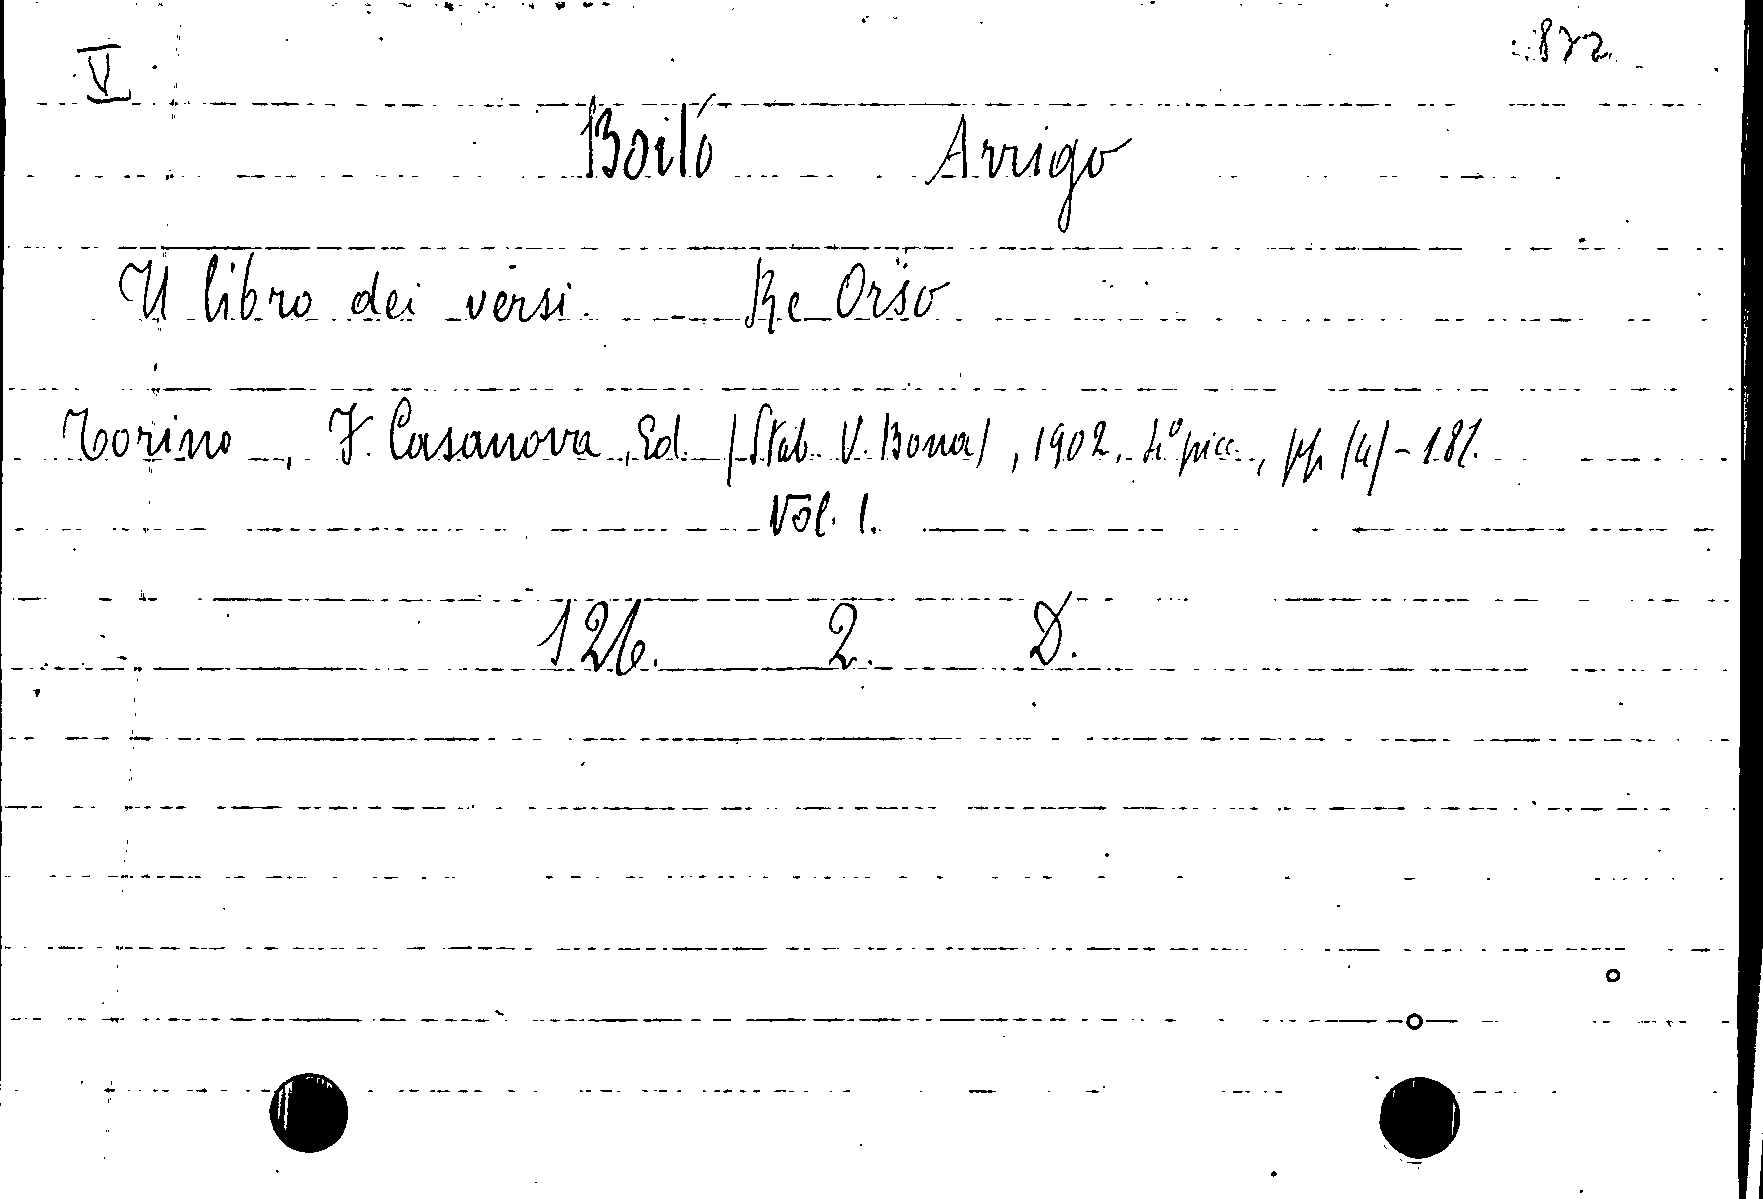 V 872
Boito Arrigo
Il libro dei versi. Re Orso
Torino, F. Casanova, Ed. (Stab. V. Bona), 1902, 4° picc., pp. (4)-181.
Vol. 1.
126. 2. D.